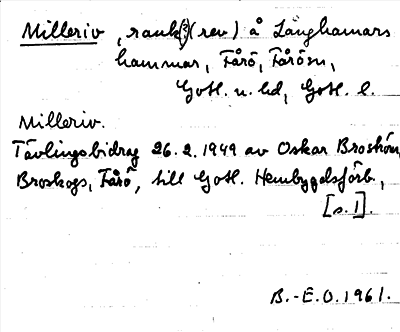 Milleriv, rauk(?)(rev) å Langhamars
hammar, Fårö, Fårösn,
Gotl. n. hd, Gotl. l.
Milleriv.
Tävlingsbidrag 26.2.1949 av Oskar Broström,
Broskogs, Fårö, till Gotl. Hembygdsförb,
[s. 1].
B.-E.O.1961.